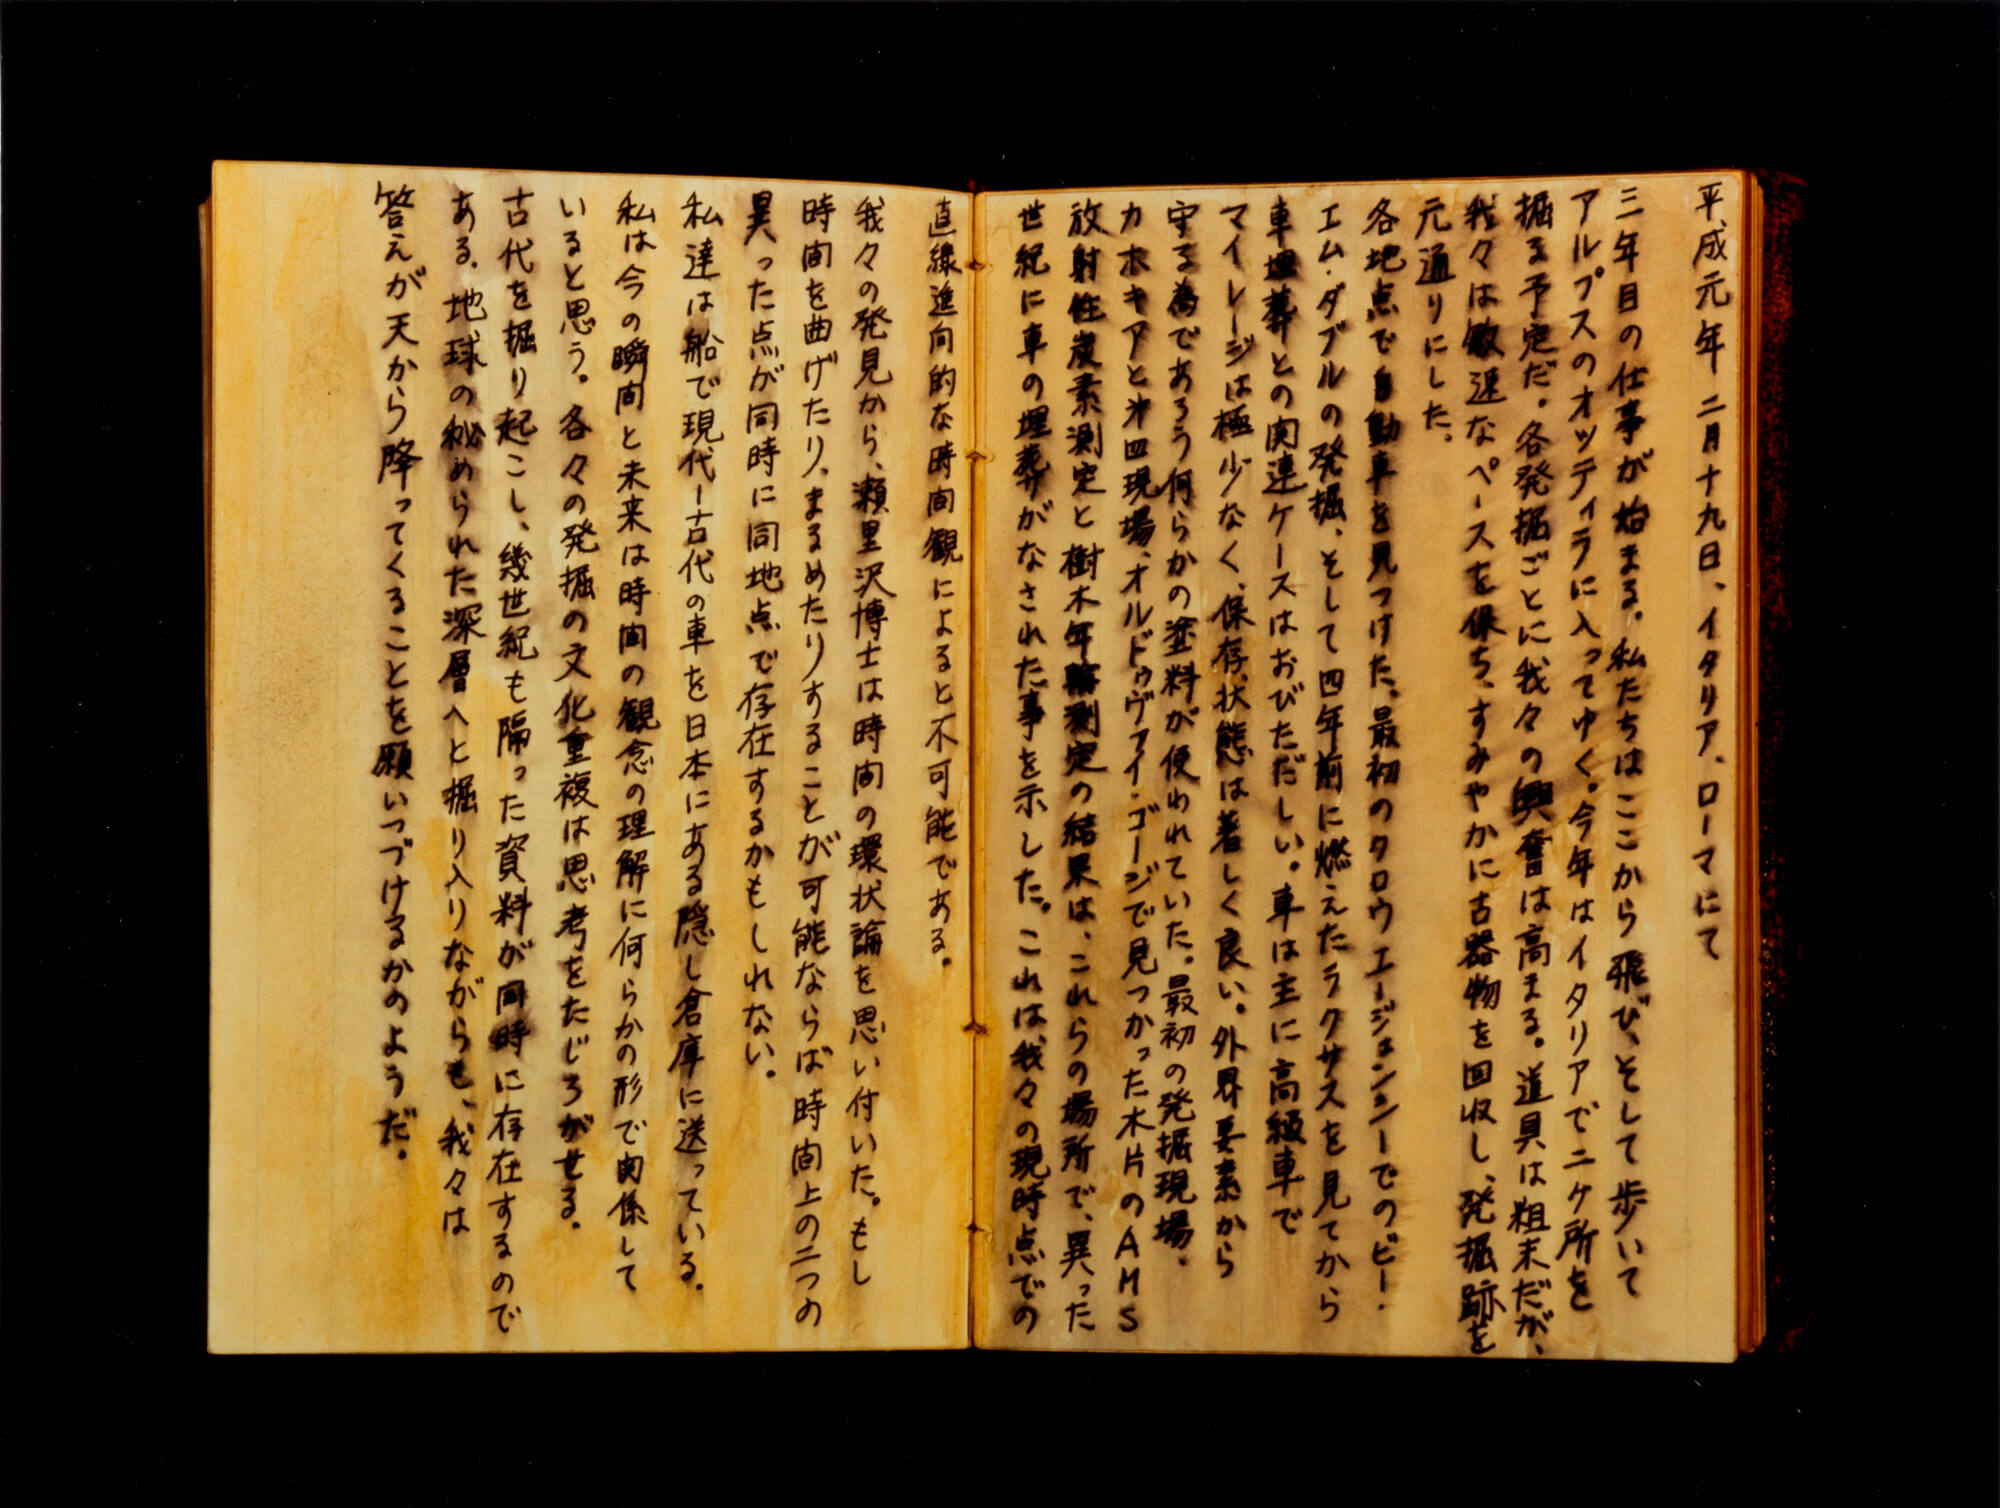 平成元年 二月十九日、イタリア、ローマにて
三年目の仕事が始まる。私たちはここから飛び、そして歩いて
アルプスのオッティラに入ってゆく。今年はイタリアで二ケ所を
掘る予定だ。各発掘ごとに我々の興奮は高まる。道具は粗末だが、
我々は敏速なペースを保ち、すみやかに古器物を回収し、発掘跡を
元通りにした。
各地点で自動車を見つけた。最初のクロウエージョンシーでのビー・
エム・ダブルの発掘、そして四年前に燃えたラクサスを見てから
車埋葬との関連ケースはおびただしい。車は主に高級車で
マイレージは極少なく、保存状態は著しく良い。外界要素から
守る為であろう何らかの塗料が使われていた。最初の発掘現場、
カホキアと第四現場、オルドゥヴァイ・ゴージで見つかった木片のAMS
放射性炭素測定と樹木年輪測定の結果は、これらの場所で、異った
世紀に車の埋葬がなされた事を示した。これは我々の現時点での
直線進向的な時間観によると不可能である。
我々の発見から、瀬里沢博士は時間の環状論を思い付いた。もし
時間を曲げたり、まるめたりすることが可能ならば時間上の二つの
異った点が同時に同地点で存在するかもしれない。
私達は船で現代ー古代の車を日本にある隠し倉庫に送っている。
私は今の瞬間と未来は時間の観念の理解に何らかの形で関係して
いると思う。各々の発掘の文化重複は思考をたじろがせる。
古代を掘り起こし、幾世紀も隔った資料が同時に存在するので
ある。地球の秘められた深層へと掘り入りながらも、我々は
答えが天から降ってくることを願いつづけるかのようだ。